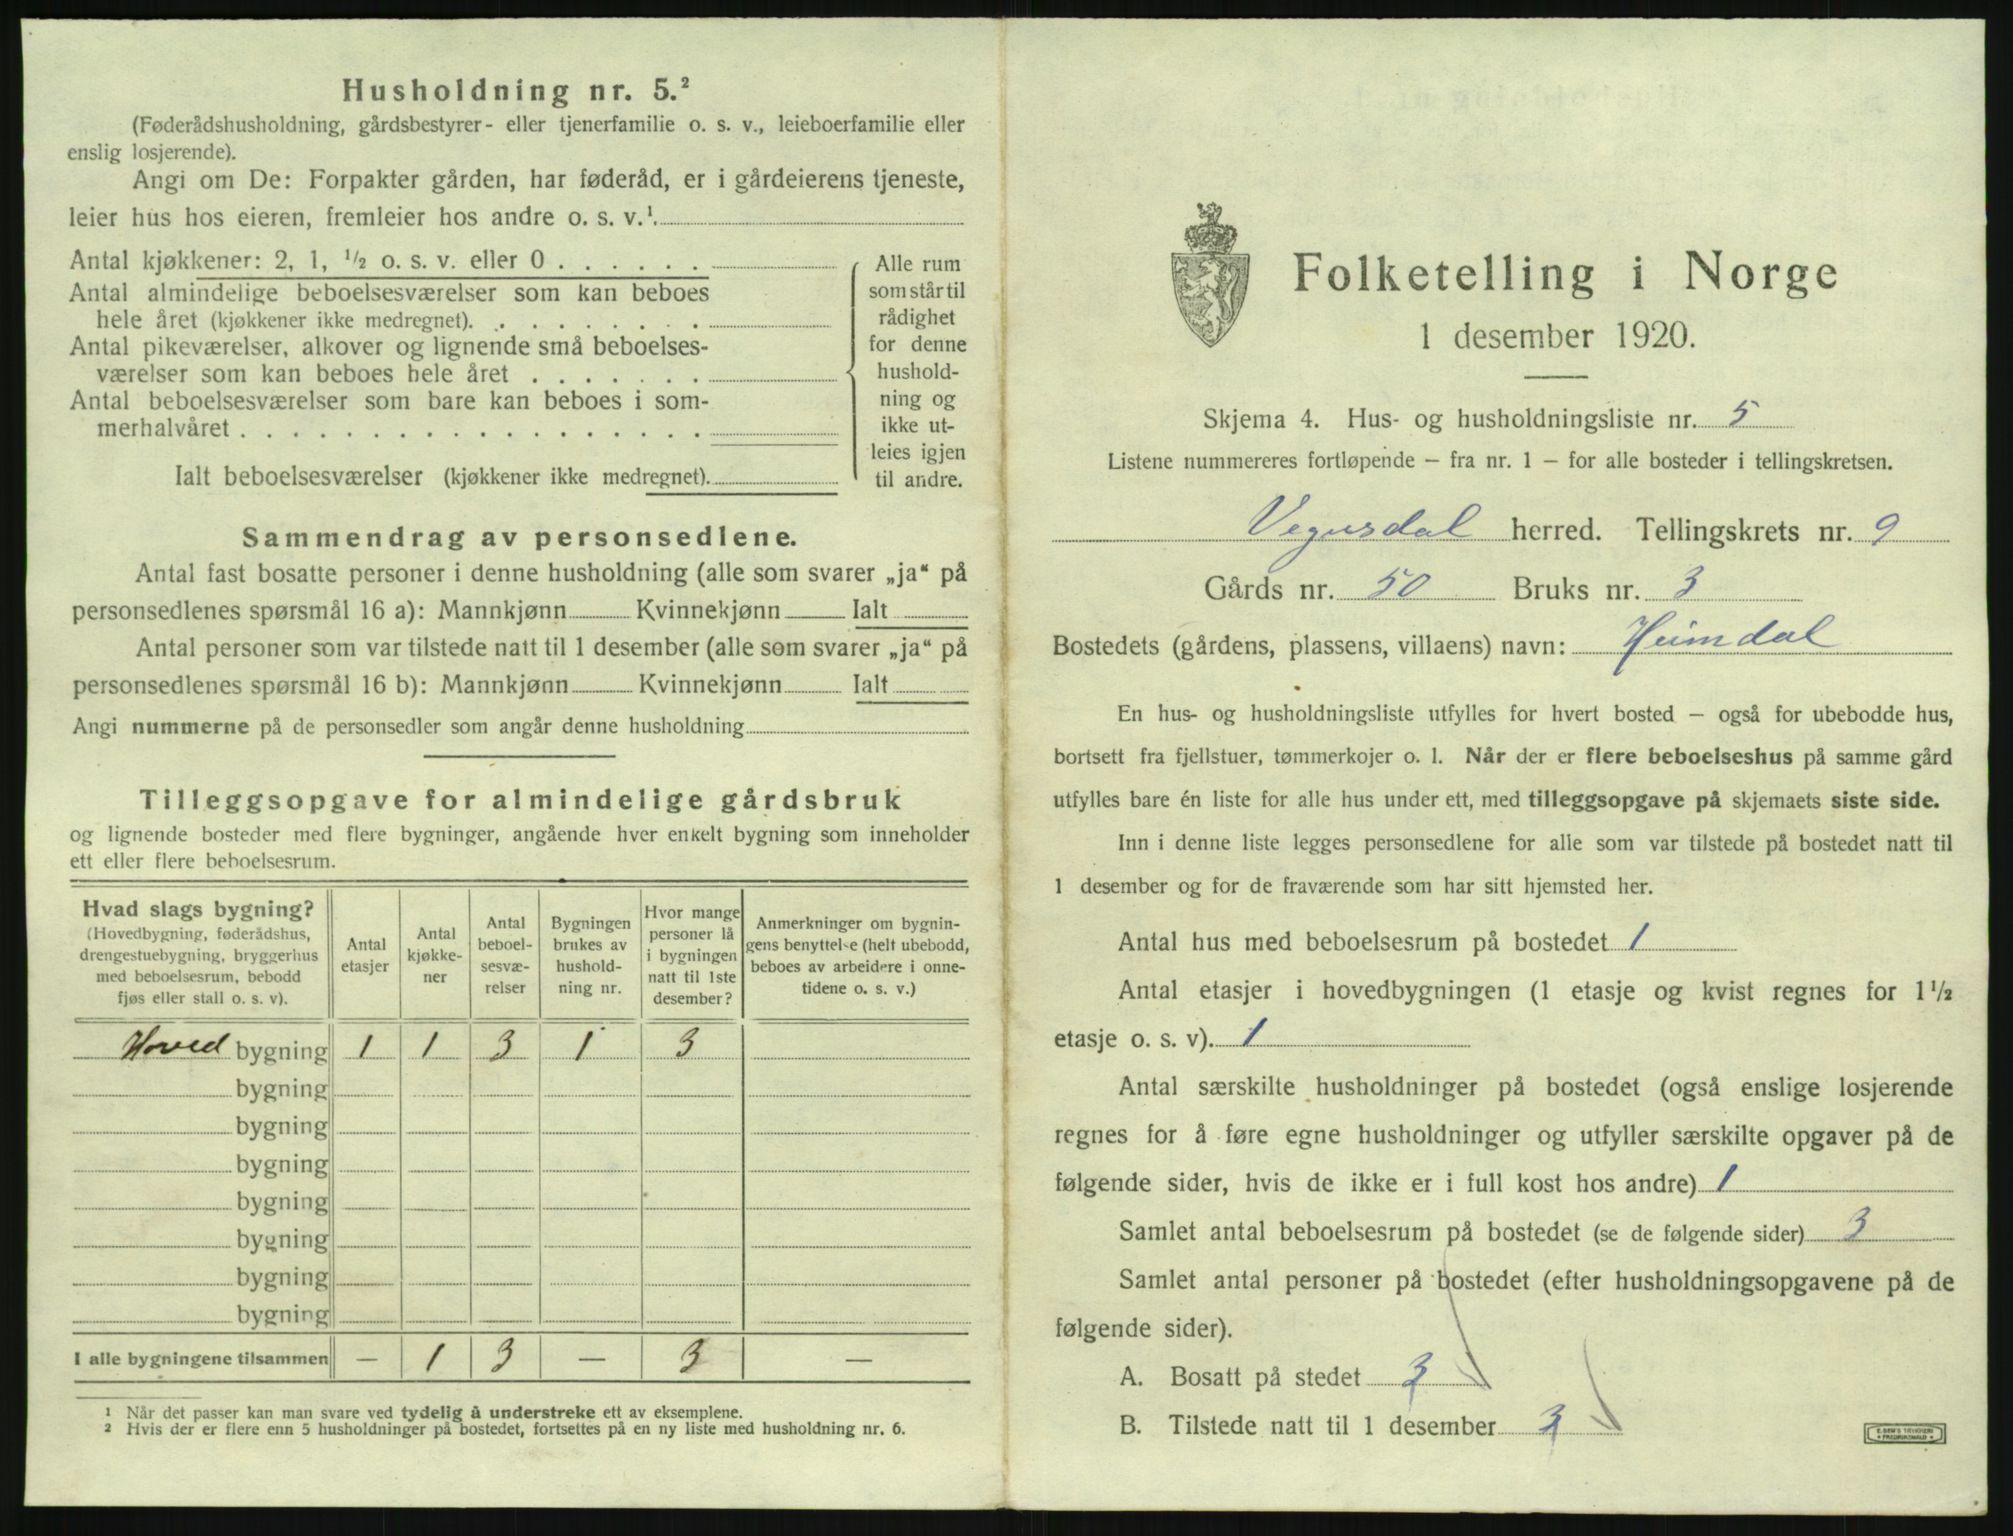 Husholdning nr. 5.²
(Føderådshusholdning, gårdsbestyrer- eller tjenerfamilie o. s. v., leieboerfamilie eller
enslig losjerende).
Angi om De: Forpakter gården, har føderåd, er i gårdeierens tjeneste,
leier hus hos eieren, fremleier hos andre o. s. v.¹
Antal kjøkkener: 2, 1, ½ o. s. v. eller 0 . . . . . .
Antal almindelige beboelsesværelser som kan beboes
hele året (kjøkkener ikke medregnet). . . . . . . . .
Antal pikeværelser, alkover og lignende små beboelses-
værelser som kan beboes hele året . . . . . . .
Antal beboelsesværelser som bare kan beboes i som-
merhalvåret . . . . . . . . . . . . . . . . . .
Ialt beboelsesværelser (kjøkkener ikke medregnet).
Alle rum
som står til
rådighet
for denne
hushold-
ning og
ikke ut-
leies igjen
til andre.
Sammendrag av personsedlene.
Antal fast bosatte personer i denne husholdning (alle som svarer „ja“ på
personsedlenes spørsmål 16 a): Mannkjønn Kvinnekjønn Ialt
Antal personer som var tilstede natt til 1 desember (alle som svarer „ja“ på
personsedlenes spørsmål 16 b): Mannkjønn Kvinnekjønn Ialt
Angi nummerne på de personsedler som angår denne husholdning
Tilleggsopgave for almindelige gårdsbruk
og lignende bosteder med flere bygninger, angående hver enkelt bygning som inneholder
ett eller flere beboelsesrum.
Hvad slags bygning?
(Hovedbygning, føderådshus,
drengestuebygning, bryggerhus
med beboelsesrum, bebodd
fjøs eller stall o. s. v).
Antal
etasjer
Antal
kjøkke-
ner
Antal
beboel-
sesvæ-
relser
Bygningen
brukes av
hushold-
ning nr.
Hvor mange
personer lå
i bygningen
natt til 1ste
desember?
Anmerkninger om bygnin-
gens benyttelse (helt ubebodd,
beboes av arbeidere i onne-
tidene o. s. v.)
Hoved bygning 1 1 3 1 3
bygning
bygning
bygning
bygning
bygning
bygning
bygning
I alle bygningene tilsammen — 1 3 — 3 —
¹ Når det passer kan man svare ved tydelig å understreke ett av eksemplene.
² Hvis der er flere enn 5 husholdninger på bostedet, fortsettes på en ny liste med husholdning nr. 6.
Folketelling i Norge
1 desember 1920.
Skjema 4. Hus- og husholdningsliste nr. 5
Listene nummereres fortløpende – fra nr. 1 – for alle bosteder i tellingskretsen.
Vegusdal herred. Tellingskrets nr. 9
Gårds nr. 50 Bruks nr. 3
Bostedets (gårdens, plassens, villaens) navn: Heimdal
En hus- og husholdningsliste utfylles for hvert bosted – også for ubebodde hus,
bortsett fra fjellstuer, tømmerkojer o. l. Når der er flere beboelseshus på samme gård
utfylles bare én liste for alle hus under ett, med tilleggsopgave på skjemaets siste side.
Inn i denne liste legges personsedlene for alle som var tilstede på bostedet natt til
1 desember og for de fraværende som har sitt hjemsted her.
Antal hus med beboelsesrum på bostedet 1
Antal etasjer i hovedbygningen (1 etasje og kvist regnes for 1½
etasje o. s. v). 1
Antal særskilte husholdninger på bostedet (også enslige losjerende
regnes for å føre egne husholdninger og utfyller særskilte opgaver på de
følgende sider, hvis de ikke er i full kost hos andre) 1
Samlet antal beboelsesrum på bostedet (se de følgende sider) 3
Samlet antal personer på bostedet (efter husholdningsopgavene på de
følgende sider).
A. Bosatt på stedet 3
B. Tilstede natt til 1 desember 3
E. SEM'S TRYKKERI
FREDRIKSHALD